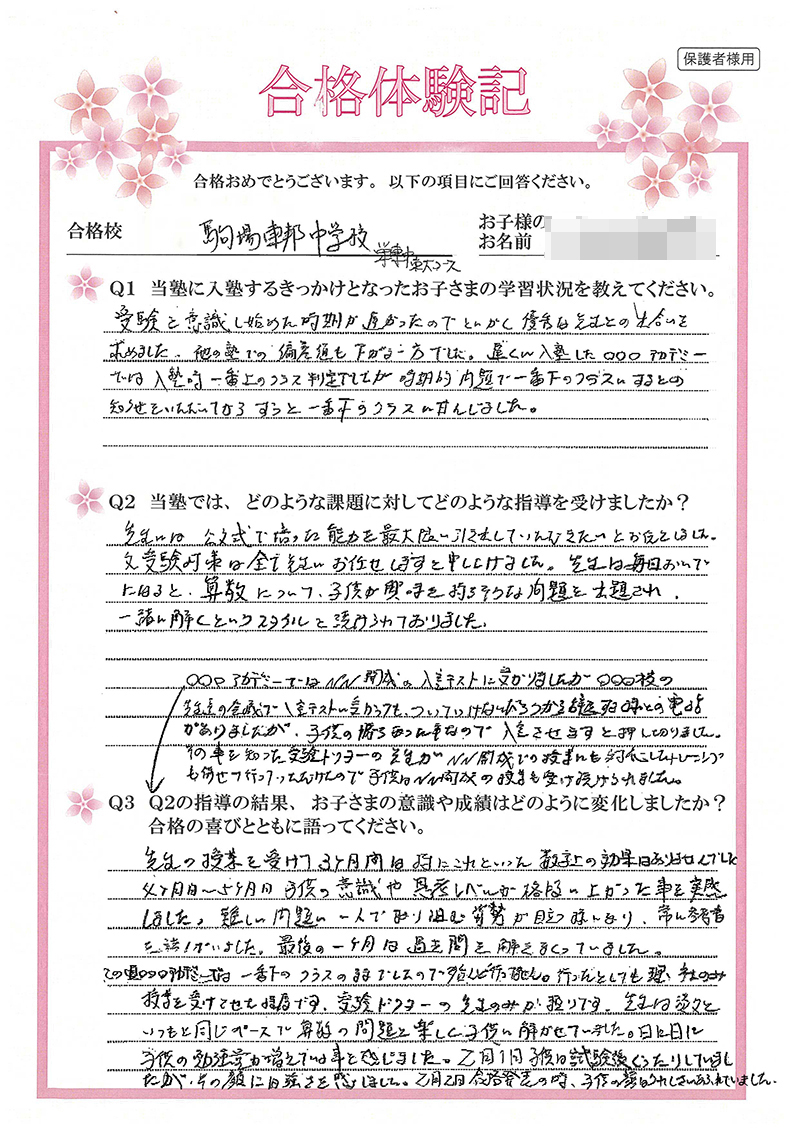 保護者様用
合格体験記
合格おめでとうございます。以下の項目にご回答ください。
合格校 駒場東邦中学校 お子様の
お名前
Q1 当塾に入塾するきっかけとなったお子さまの学習状況を教えてください。
受験を意識し始めた時期が遅かったのでとにかく優秀な先生との出会いを
求めました。他の塾での偏差値も下がる一方でした。遅くに入塾した○○○アカデミー
では入塾時一番上のクラス判定でしたが時期的問題で一番下のクラスにするとの
知らせをいただいてからずっと一番下のクラスに甘んじました。
Q2 当塾では、どのような課題に対してどのような指導を受けましたか？
先生には公文式で培った能力を最大限に引き出していただきたいとお伝えしました。
又受験対策は全て先生にお任せしますと申し上げました。先生は毎回おいで
になると、算数について、子供が興味を持ちそうな問題を出題され、
一緒に解くというスタイルを続けられておりました。
○○○アカデミーではNN開成の入室テストに受かりましたが○○○校の
がありましたが、子供の勝ちとった事なので入室させますと押し切りました。
その事を知った受験ドクターの先生がNN開成での授業にも対応したトレーニング
も併せて行っていただけたので子供はNN開成の授業も受け続けられました。
Q3 Q2の指導の結果、お子さまの意識や成績はどのように変化しましたか？
合格の喜びとともに語ってください。
先生の授業を受けて3ヶ月間は特にこれといった数字上の効果はありませんでした
4ヶ月目〜5ヶ月目子供の意識や思考レベルが格段に上がった事を実感
しました。難しい問題に一人で取り組む姿勢が目立つ様になり、常に参考書
最後の一ヶ月は過去問を解きまくっていました。
一番下のクラスのままでしたので
授業を受けさせた程度です。受験ドクターの先生のみが頼りです。先生は淡々と
いつもと同じペースで算数の問題を楽しく子供に解かせていました。日に日に
子供の勉強量が増えている事を感じました。2月1日子供は試験後ぐったりしていまし
たが、その顔には強さを感じました。2月2日合格発表の時、子供の顔はうれしさにあふれていました。